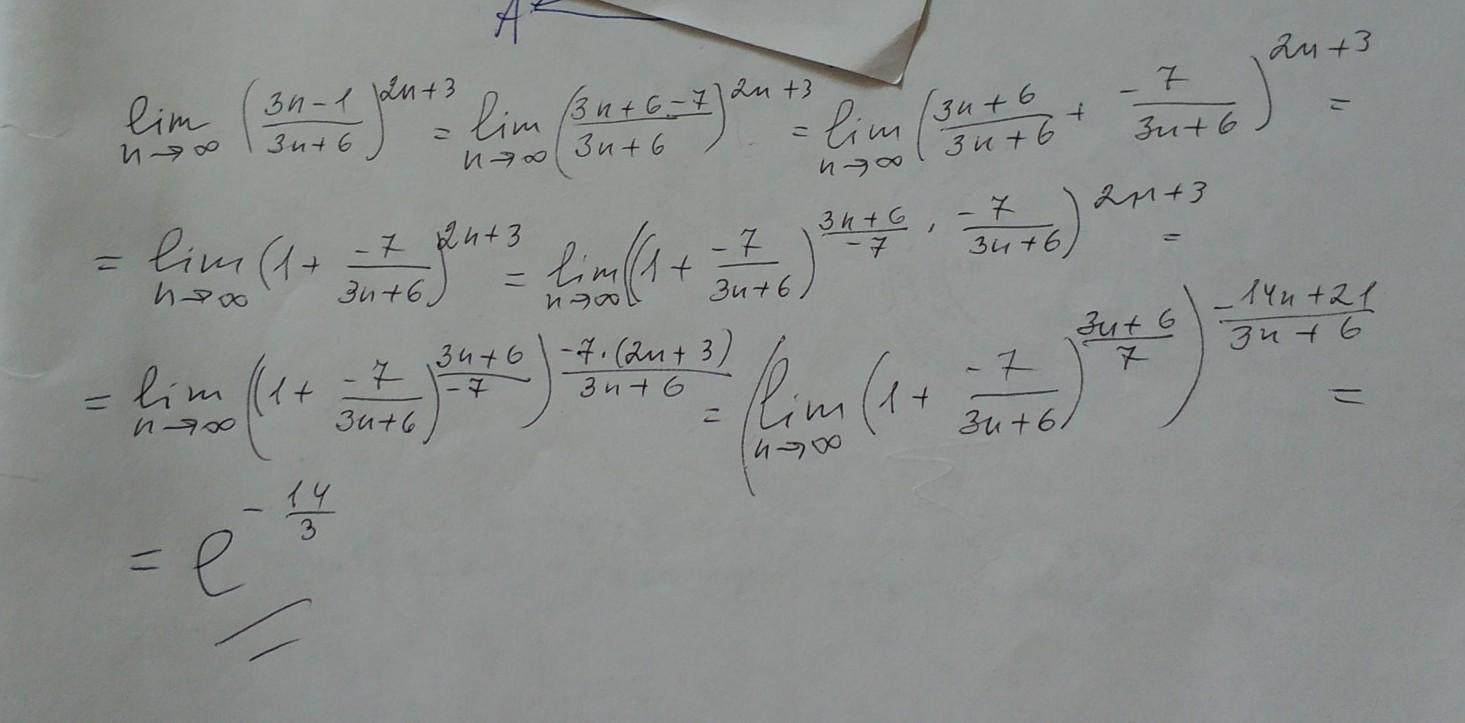 A
lim n→∞ ((3n-1)/(3n+6))^(2n+3) = lim n→∞ ((3n+6-7)/(3n+6))^(2n+3) = lim n→∞ ((3n+6)/(3n+6) + (-7)/(3n+6))^(2n+3) =
= lim n→∞ (1 + (-7)/(3n+6))^(2n+3) = lim n→∞ ((1 + (-7)/(3n+6))^((3n+6)/(-7) · (-7)/(3n+6)))^(2n+3) =
= lim n→∞ ((1 + (-7)/(3n+6))^((3n+6)/(-7)))^((-7·(2n+3))/(3n+6)) = (lim n→∞ (1 + (-7)/(3n+6))^((3n+6)/7))^((-14n+21)/(3n+6)) =
= e^(-14/3)